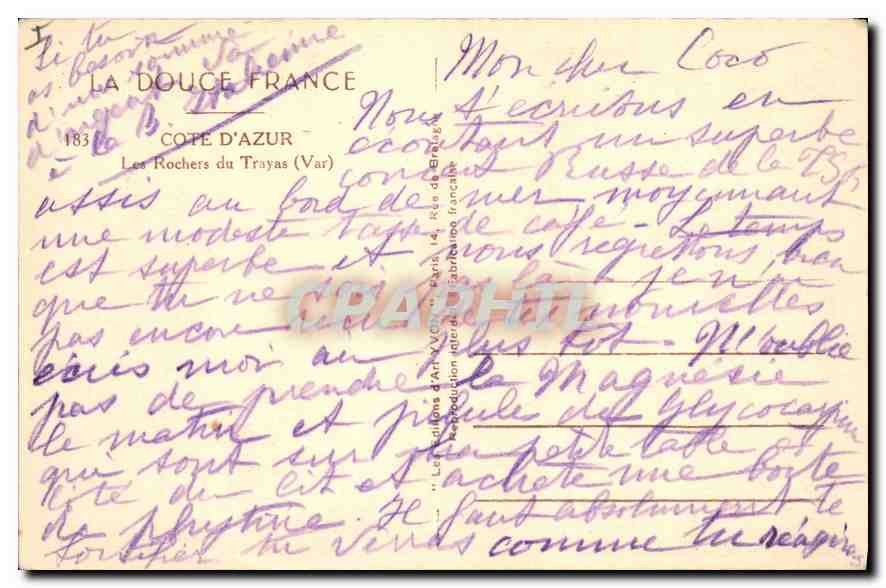 Si tu
as besoin
d'une somme
d'argent va
à la B.
LA DOUCE FRANCE
183
COTE D'AZUR
Les Rochers du Trayas (Var)
Mon cher Coco
Nous t'écrivons en
écoutant un superbe
concert Russe de la TSF
assis au bord de mer moyennant
une modeste tasse de café - Le temps
est superbe et nous regrettons bien
que tu ne sois pas là - je n'ai
pas encore reçu de tes nouvelles
écris moi au plus tôt - N'oublie
pas de prendre la Magnésie
le matin et pilules de Glycocarpine
qui sont sur ma petite table à
côté du lit et achète une boîte
de phytine. Il faut absolument te
fortifier tu verras comme tu réagiras
" Les Editions d'Art YVON " Paris, 14, Rue de Bretagne
Reproduction interdite Fabrication française
CPARHII